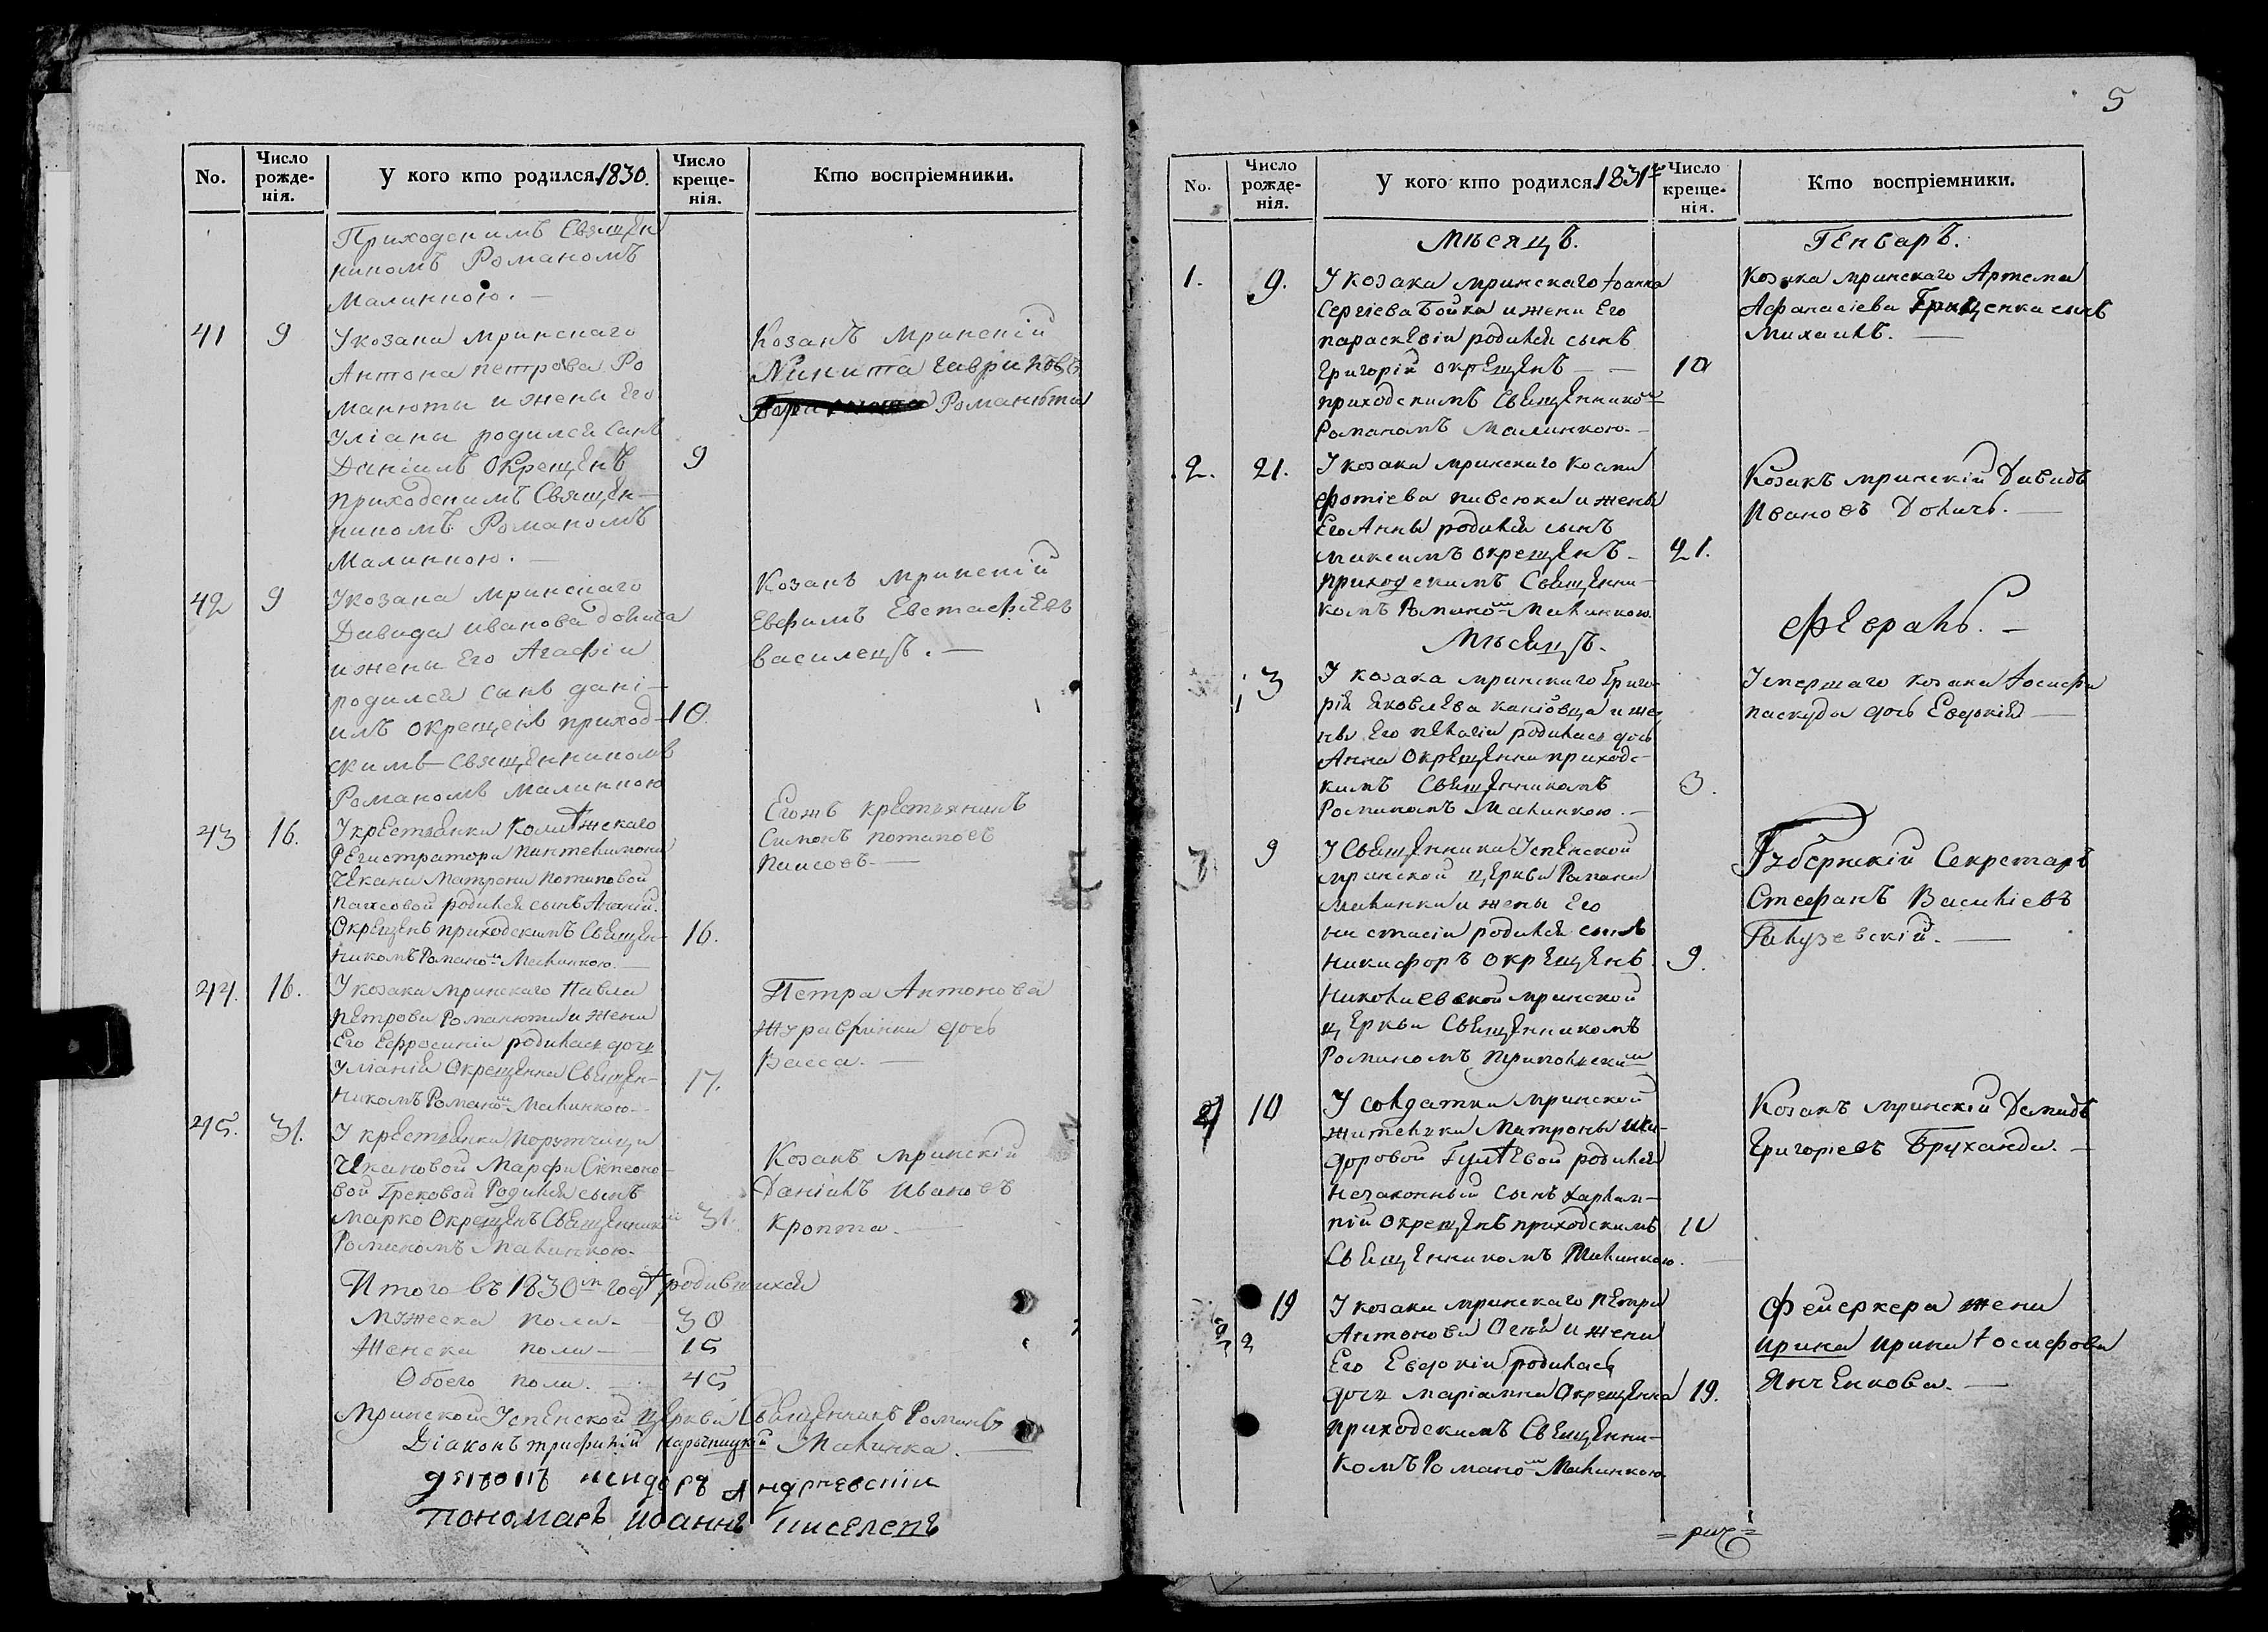 No.
Число рожде-нія.
У кого кто родился. 1830.
Число креще-нія.
Кто воспріемники.
Приходскимъ Священ
никомъ Романомъ
Малинкою. —
41 9 У козака мринскаго
Антона петрова Ро
манюты и жены Его
Уліаны родился Сынъ
Даніилъ Окрещенъ 9
приходскимъ Священ-
никомъ Романомъ
Малинкою. —
Козакъ Мринскій
Никита Гавриловъ
Романюта
42 9 У козака Мринскаго
Давида иванова долича
и жены Его Агафіи
родился сынъ дані-
илъ окрещенъ приход- 10.
скимъ Священникомъ
Романомъ Малинкою
Козакъ Мринскій
Евфимъ Евстафіевъ
василецъ. —
43 16. У крестьянки Колежскаго
Регистратора Пантелимона
Чекана Матроны потаповой
родился сынъ
Окрещенъ приходскимъ Священ- 16.
никомъ Романомъ Малинкою. —
Егожъ крестьянинъ
Симонъ потаповъ
44. 16. У козака мринскаго Павла
петрова Романюты и жены
Его Ефросиніи родилась дочь
Уліанія Окрещенна Священ- 17.
никомъ Романомъ Малинкою. —
Петра Антонова
Журавринки дочь
Васса. —
45. 31. У крестьянки порутчицы
Чекановой Марфы
вой Грековой Родился сынъ
Марко Окрещенъ Священникомъ 31.
Романомъ Малинкою. —
Козакъ мринскій
Даніилъ Ивановъ
Кропта. —
Итого въ 1830мъ годѣ родившихся
Мужеска пола — 30
Женска пола — 15
Обоего пола. — 45
Мринской Успенской Церкви Священникъ Романъ
Малинка. —
Діаконъ Трифилій
дячокъ
пономарь иоаннъ киселевъ
5
No.
Число рожде-нія.
У кого кто родился. 1831го
Число креще-нія.
Кто воспріемники.
Мѣсяцъ. Генварь.
1. 9. У козака мринскаго Іоанна
Сергіева Бойка и жены Его
параскевіи родился сынъ
Григорій окрещенъ — — 10
приходскимъ Священникомъ
Романомъ Малинкою. —
Козака мринскаго Артема
Афанасіева Грищенка сынъ
Михаилъ. —
2. 21. У козака мринскаго Космы
фотіева пивсюка и жены
Его Анны родился сынъ
Максимъ окрещенъ — 21.
приходскимъ Священни-
комъ Романомъ Малинкою.
Козакъ мринскій Давидъ
Ивановъ Доличъ. —
Мѣсяцъ. Февраль. —
3 У козака мринскаго Григо-
рія Яковлева каніовца и же-
ны Его пелагіи родилась дочь
Анна Окрещенна приходс-
кимъ Священникомъ 3.
Романомъ Малинкою. —
Умершаго козака Іосифа
паскуда дочь Евдокія —
9 У Священника Успенской
мринской церкви Романа
Малинки и жены Его
настасіи родился сынъ
Никифоръ окрещенъ. 9.
Николаевской мринской
церкви Священникомъ
Романомъ
Губернскій Секретарь
Стефанъ Василіевъ
10 У солдатки мринской
жителки Матроны
доровой родился
незаконный сынъ Харлам-
пій окрещенъ приходскимъ 10
Священникомъ Малинкою. —
Козакъ мринскій Демидъ
Григоріевъ Бруханда. —
19 У козака мринскаго петра
Антонова и жены
Его Евдокіи родилась
дочь маріамна Окрещенна 19.
приходскимъ Священни-
комъ Романомъ Малинкою.
Фейеркера жена
ирина ирина Іосифова
Янченкова. —